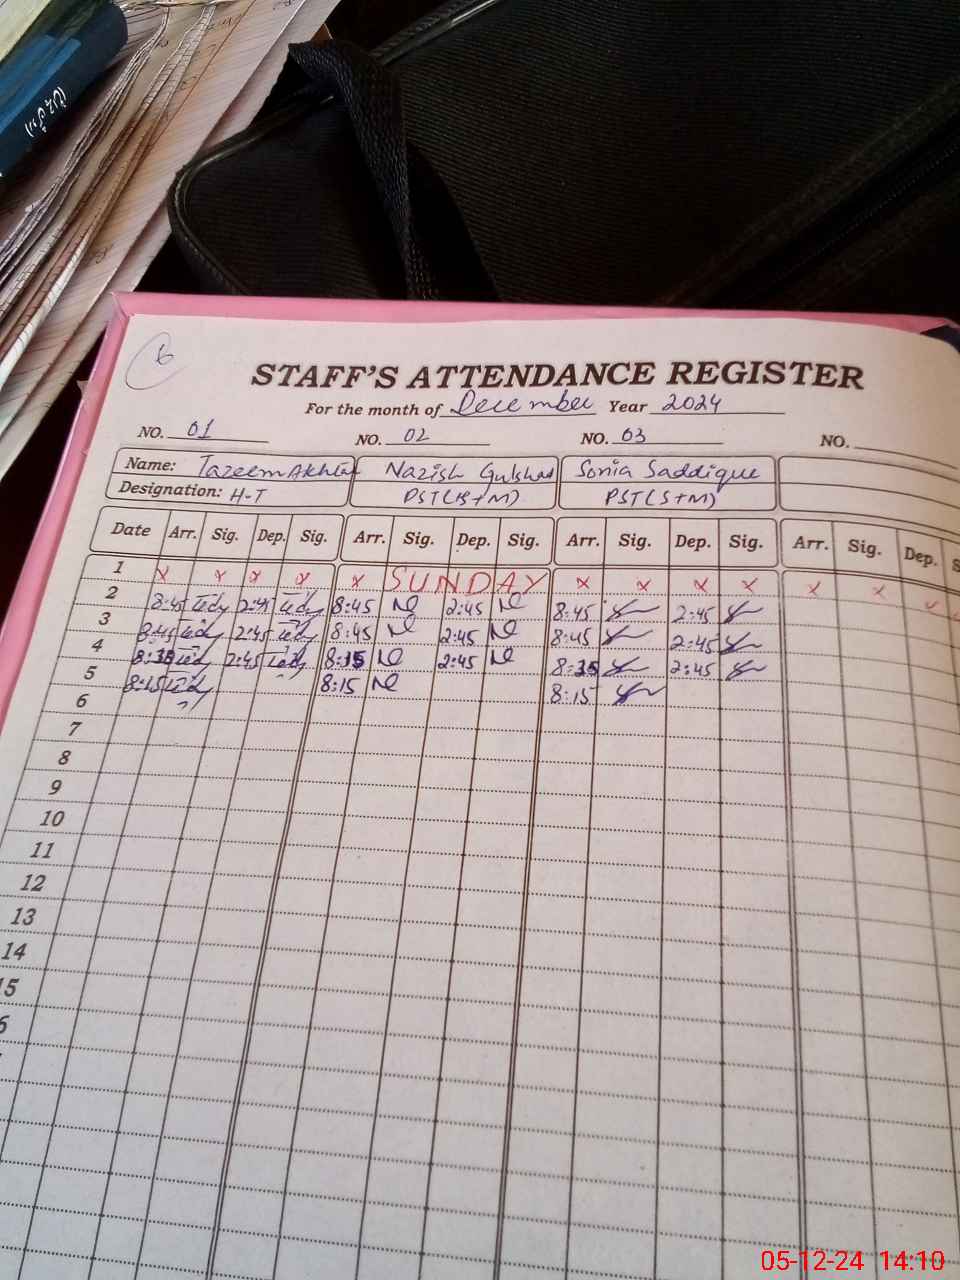 6
STAFF'S ATTENDANCE REGISTER
For the month of December Year 2024
NO. 01 NO. 02 NO. 03 NO.
Name: Tazeem Akhtar Nazish Gulshad Sonia Saddique
Designation: H-T PST(B+M) PST(S+M)
Date Arr. Sig. Dep. Sig. Arr. Sig. Dep. Sig. Arr. Sig. Dep. Sig. Arr. Sig. Dep. S
1 x x x x x SUNDAY x x x x x x x
2 8:45 2:45 8:45 2:45 8:45 2:45
3 8:45 2:45 8:45 2:45 8:45 2:45
4 2:45 8:15 2:45 2:45
5 8:15 8:15 8:15
6
7
8
9
10
11
12
13
14
15
6
05-12-24 14:10